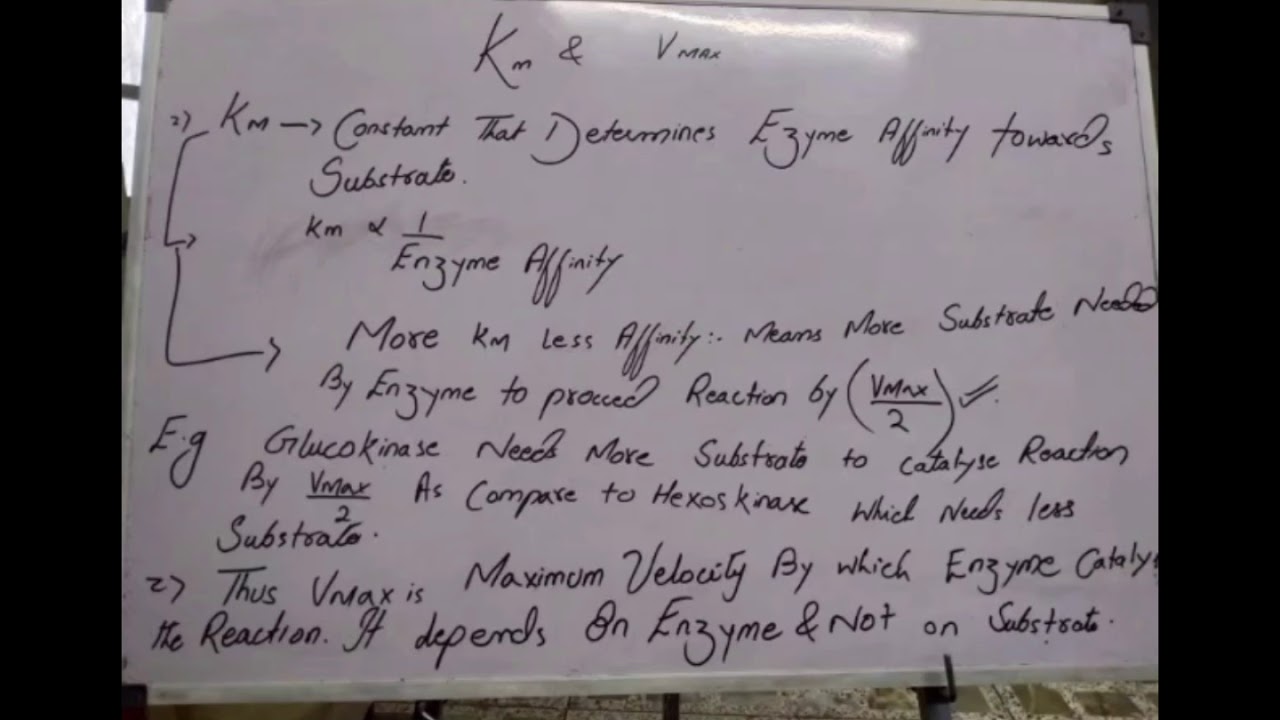 Km & VMAX
1) Km → Constant That Determines Ezyme Affinity towards
Substrate.
Km ∝ 1/Enzyme Affinity
More Km Less Affinity:- Means More Substrate Needed
By Enzyme to proceed Reaction by (VMax/2) ✓
E.g Glucokinase Needs More Substrate to catalyse Reaction
By VMax/2 As Compare to Hexoskinase which Needs less
Substrate.
2) Thus VMax is Maximum Velocity By which Enzyme Cataly
the Reaction. It depends On Enzyme & Not on Substrate.